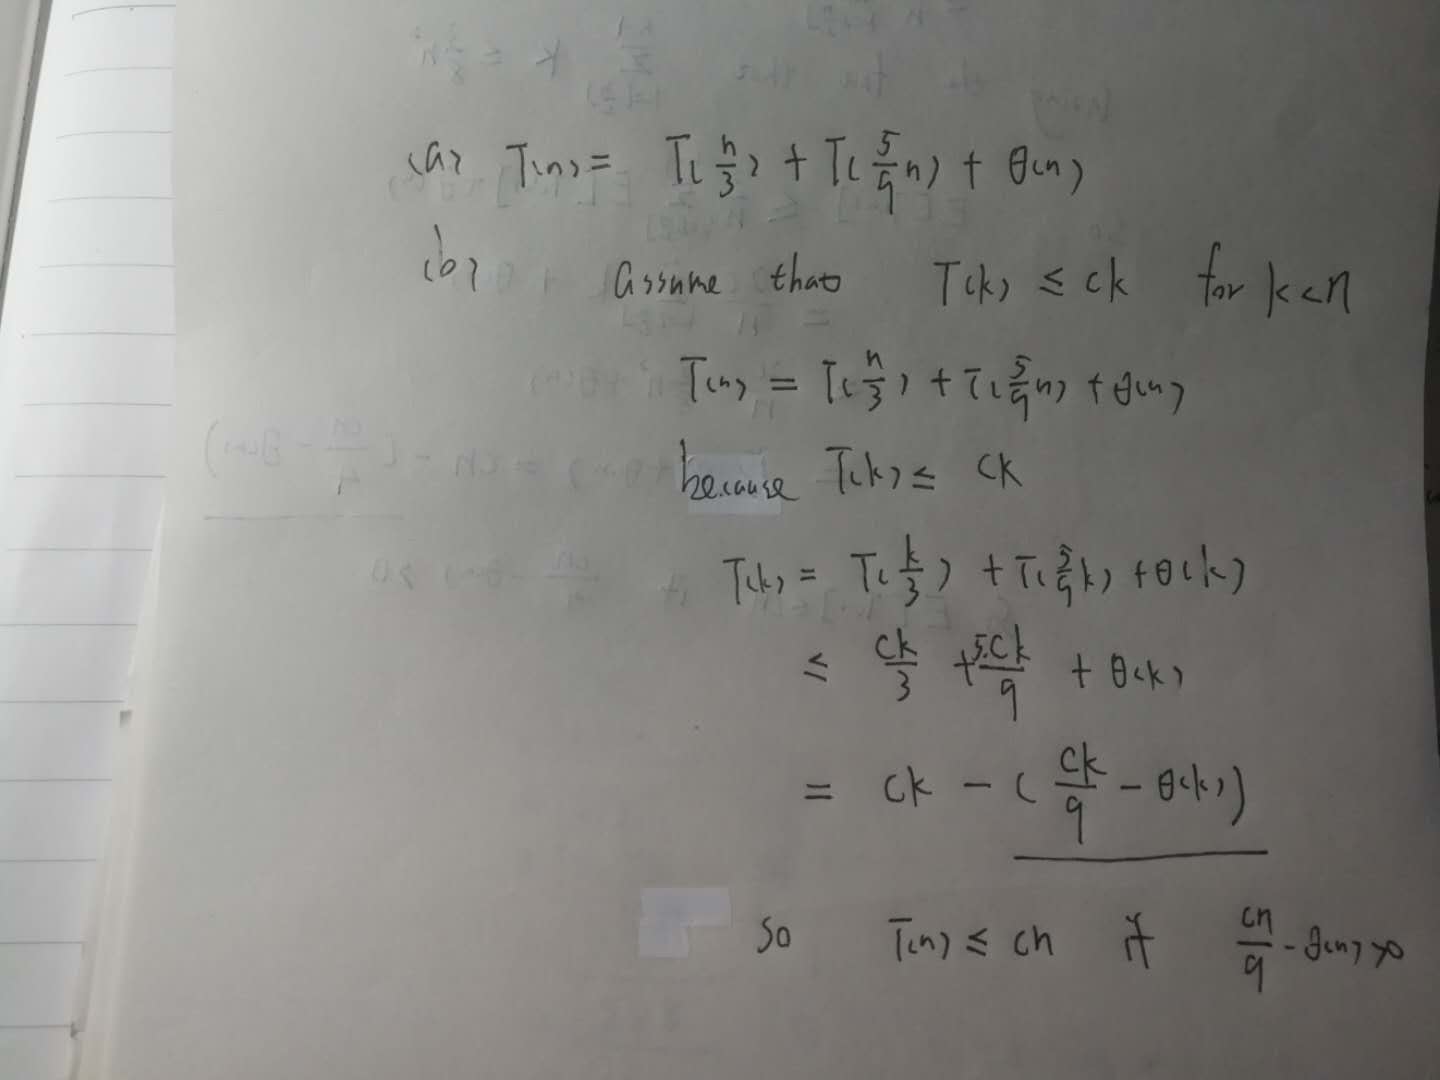 (a) T(n) = T(n/3) + T(5/9 n) + θ(n)
(b) assume that T(k) ≤ ck for k<n
T(n) = T(n/3) + T(5/9 n) + θ(n)
because T(k) ≤ ck
T(k) = T(k/3) + T(5/9 k) + θ(k)
≤ ck/3 + 5·ck/9 + θ(k)
= ck - (ck/9 - θ(k))
so T(n) ≤ cn if cn/9 - θ(n) >0